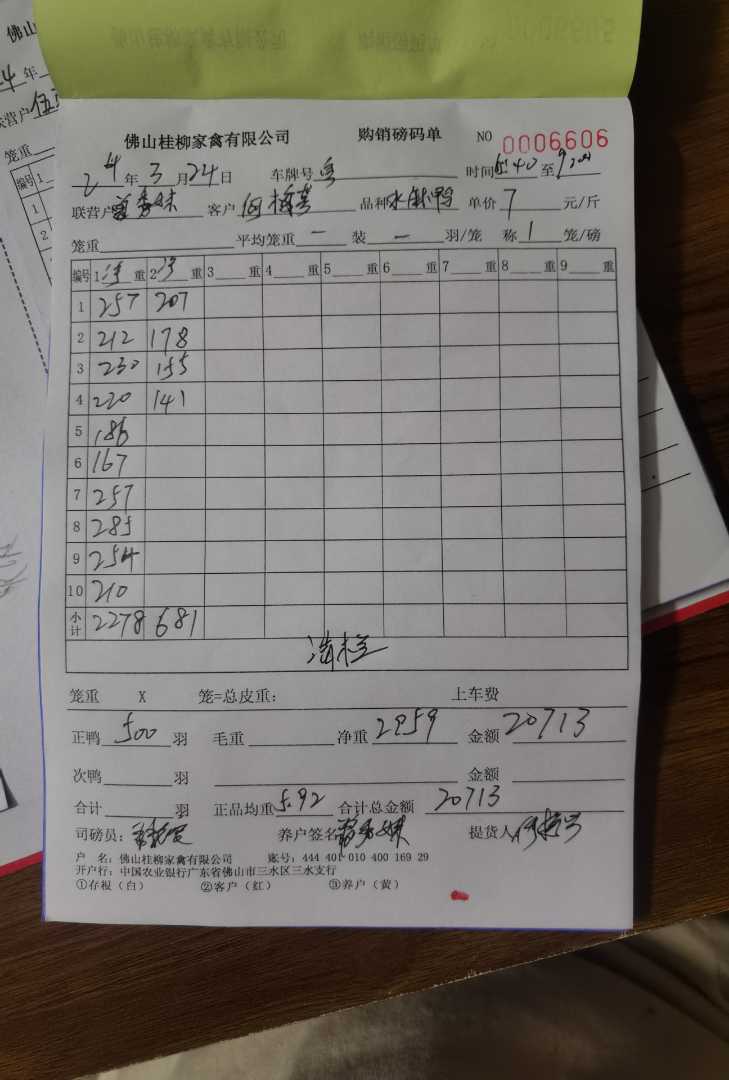 佛山桂柳家禽有限公司 购销磅码单 NO 0006606
24年3月24日 车牌号粤 时间 40至9
联营户 秀妹 客户 品种水 鸭 单价7 元/斤
笼重 平均笼重一 装一 羽/笼 称1笼/磅
编号 1净重 2净重 3 重 4 重 5 重 6 重 7 重 8 重 9 重
1 257 207
2 212 178
3 230 155
4 220 141
5 186
6 167
7 257
8 285
9 254
10 210
小计 2278 681
清栏
笼重 X 笼=总皮重: 上车费
正鸭500羽 毛重 净重2959 金额20713
次鸭 羽 金额
合计 羽 正品均重5.92 合计总金额20713
司磅员: 养户签名 秀妹 提货人
户 名: 佛山桂柳家禽有限公司 账号: 444 401 010 400 169 29
开户行: 中国农业银行广东省佛山市三水区三水支行
①存根（白） ②客户（红） ③养户（黄）
佛山
4年
联营户伍
笼重
编号 1
1
2